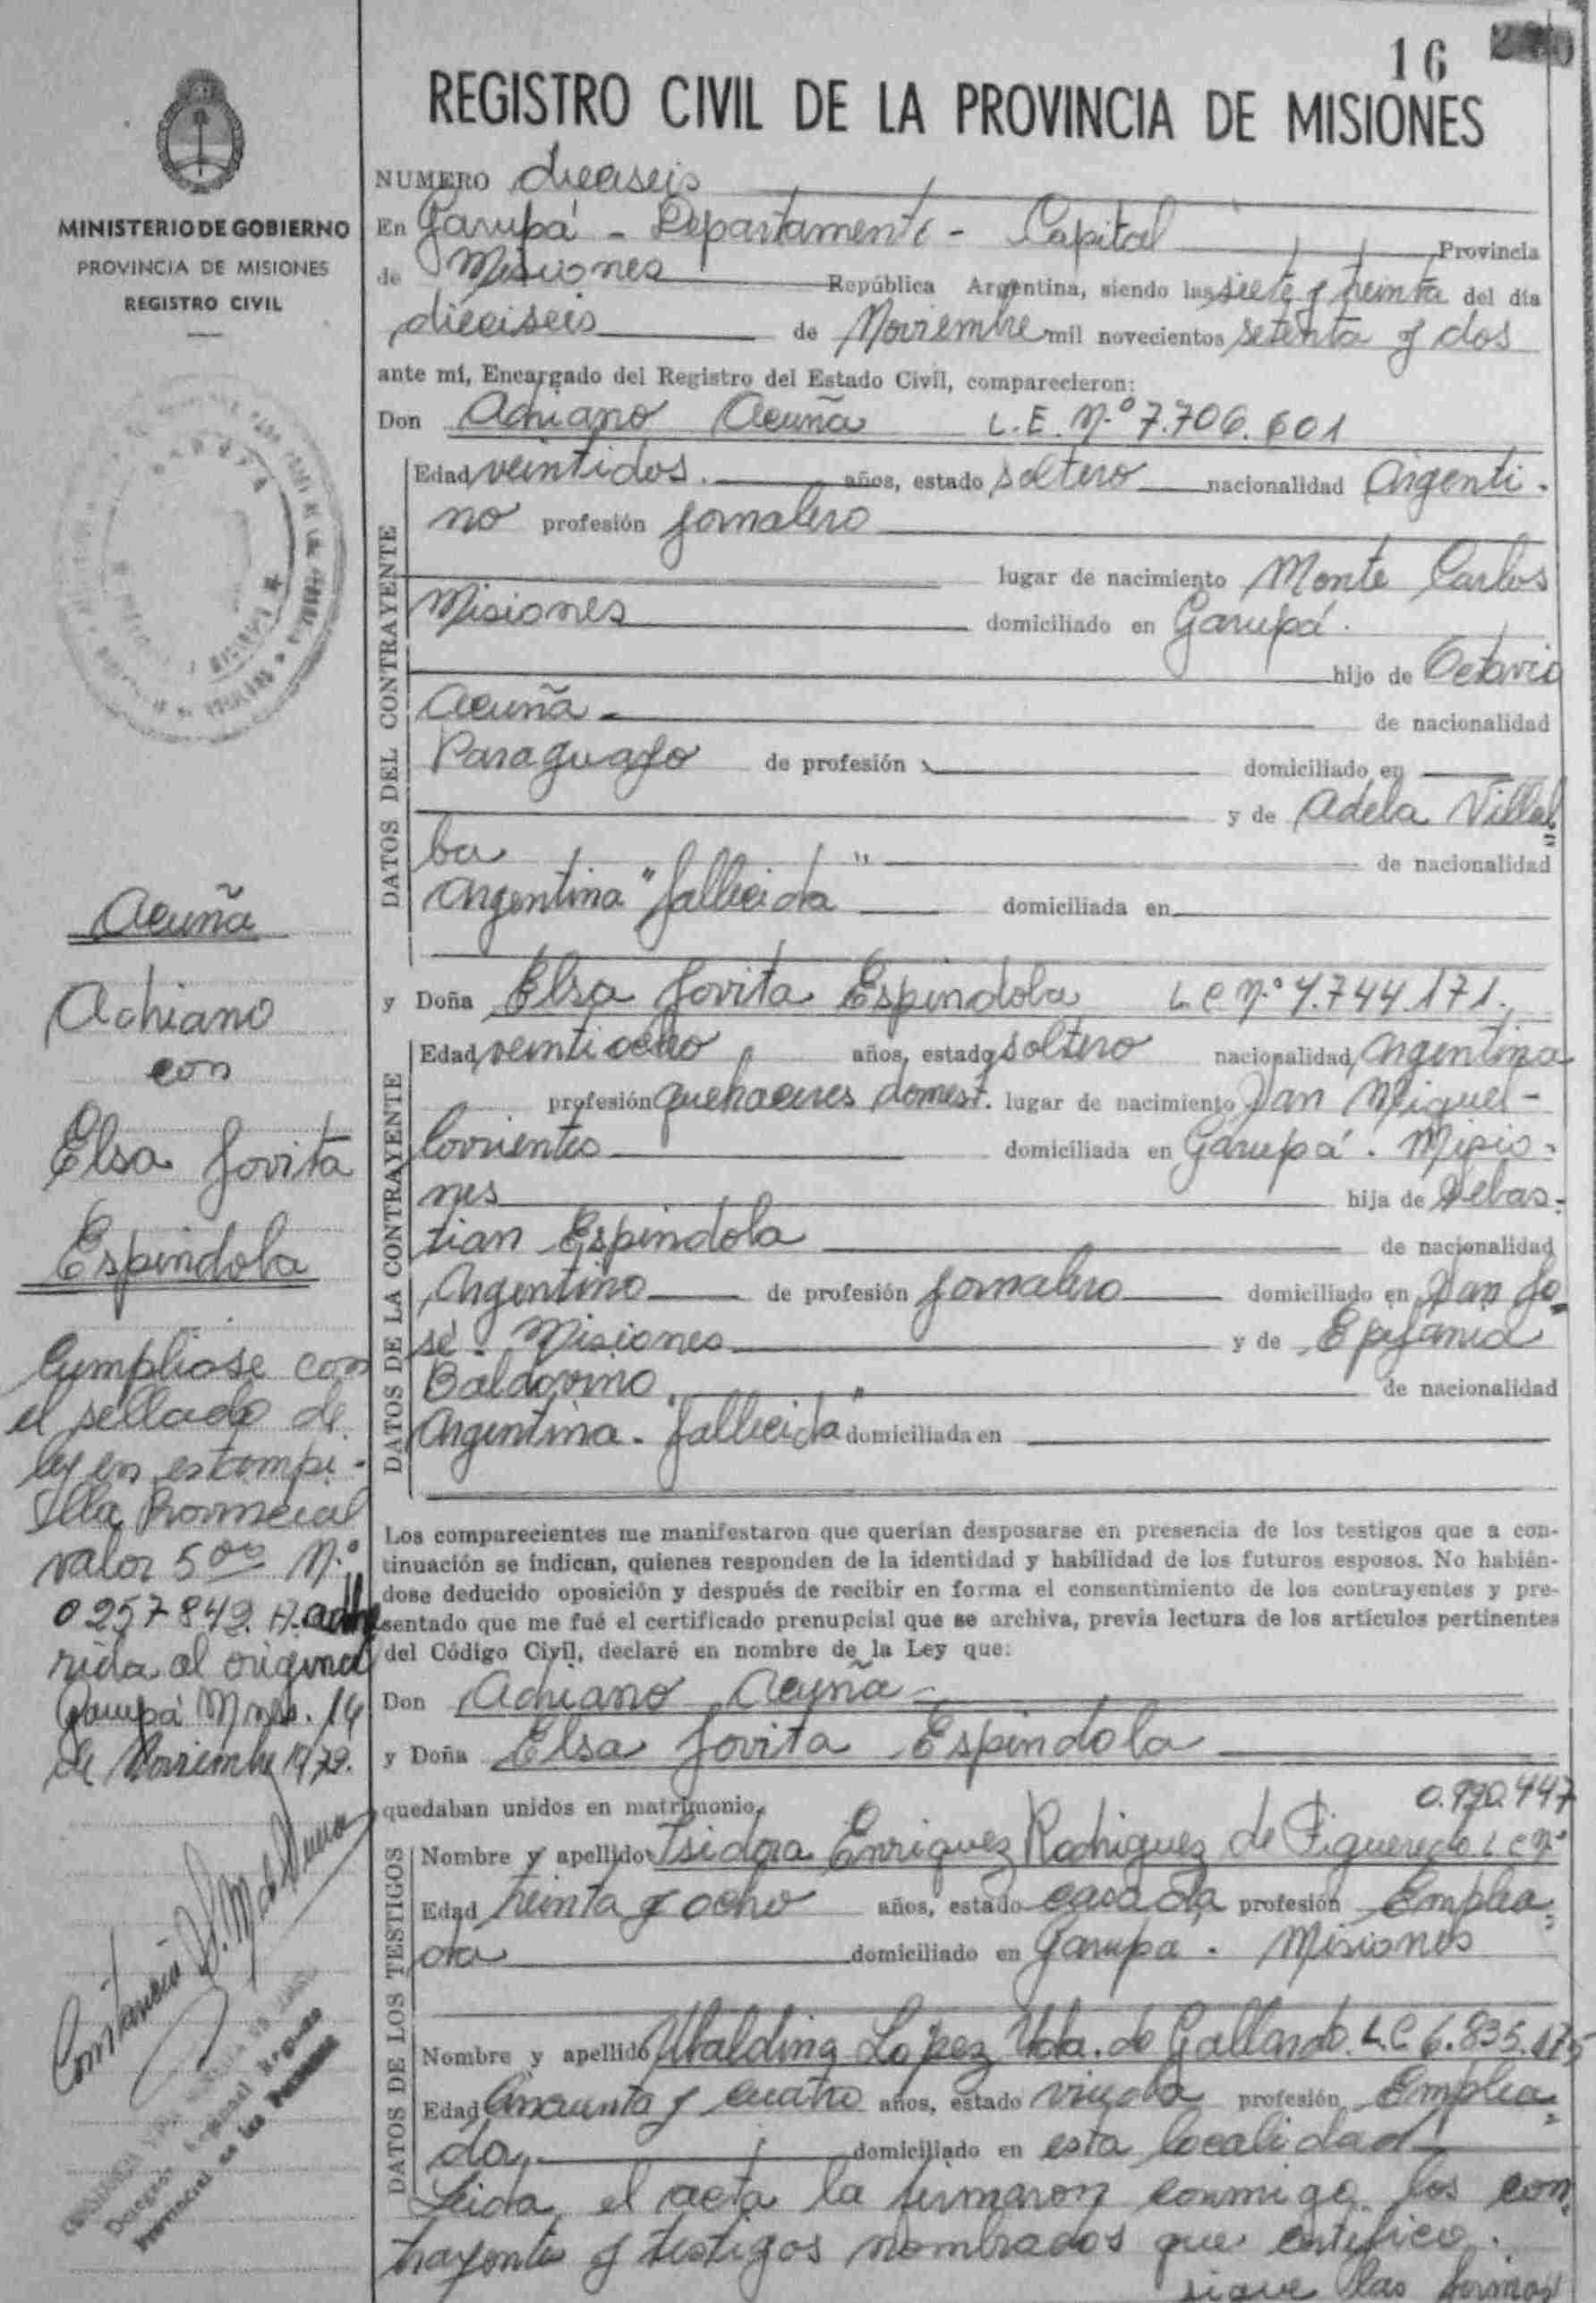 16
REGISTRO CIVIL DE LA PROVINCIA DE MISIONES
MINISTERIO DE GOBIERNO
PROVINCIA DE MISIONES
REGISTRO CIVIL
NUMERO dieciseis
En Garupá - Departamento - Capital Provincia
de Misiones República Argentina, siendo las siete y treinta del día
dieciseis de Noviembre mil novecientos setenta y dos
ante mí, Encargado del Registro del Estado Civil, comparecieron:
Don Adriano Acuña L.E. Nº 7.706.601
DATOS DEL CONTRAYENTE
Edad veintidos. años, estado soltero nacionalidad Argenti-
no profesión jornalero
lugar de nacimiento Monte Carlos
Misiones domiciliado en Garupá.
hijo de Octavio
Acuña - de nacionalidad
Paraguayo de profesión domiciliado en
y de Adela Villal=
ba de nacionalidad
Argentina "fallecida" domiciliada en
y Doña Elsa Jovita Espindola L.C Nº 4.744.171.
DATOS DE LA CONTRAYENTE
Edad veintiocho años, estado soltero nacionalidad Argentina
profesión quehaceres domest. lugar de nacimiento San Miguel -
Corrientes domiciliada en Garupá. Misio-
nes hija de Sebas-
tian Espindola de nacionalidad
Argentino de profesión jornalero domiciliado en San Jo=
sé - Misiones y de Epifania
Baldovino. de nacionalidad
Argentina - "fallecida" domiciliada en
Los comparecientes me manifestaron que querían desposarse en presencia de los testigos que a con-
tinuación se indican, quienes responden de la identidad y habilidad de los futuros esposos. No habién-
dose deducido oposición y después de recibir en forma el consentimiento de los contrayentes y pre-
sentado que me fué el certificado prenupcial que se archiva, previa lectura de los artículos pertinentes
del Código Civil, declaré en nombre de la Ley que:
Don Adriano Acuña -
y Doña Elsa Jovita Espindola
quedaban unidos en matrimonio.
DATOS DE LOS TESTIGOS
0.990.447
Nombre y apellido Isidora Enriquez Rodriguez de Figueredo L C Nº
Edad treinta y ocho años, estado casada profesión Emplea=
da domiciliado en Garupa. Misiones
Nombre y apellido Ubaldina López Vda. de Gallardo. L.C 6.835.175
Edad Cincuenta y cuatro años, estado viuda profesión Emplea=
da. domiciliado en esta localidad
Leida el acta la firmaron conmigo los con=
trayentes y testigos nombrados que certifico.
sigue las firmas
Acuña
Adriano
con
Elsa Jovita
Espindola
Cumpliose con
el sellado de
ley en estampi-
lla Provincial
valor 5 00 Nº
0257842. A. adhe
rida al original
Garupá Mnes. 16
de Noviembre 1972.